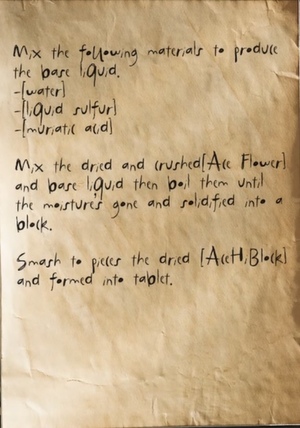 Mix the following materials to produce
the base liquid.
-[water]
-[liquid sulfur]
-[muriatic acid]
Mix the dried and crushed[Ace Flower]
and base liquid then boil them until
the moisture's gone and solidified into a
block.
Smash to pieces the dried [AceHiBlock]
and formed into tablet.